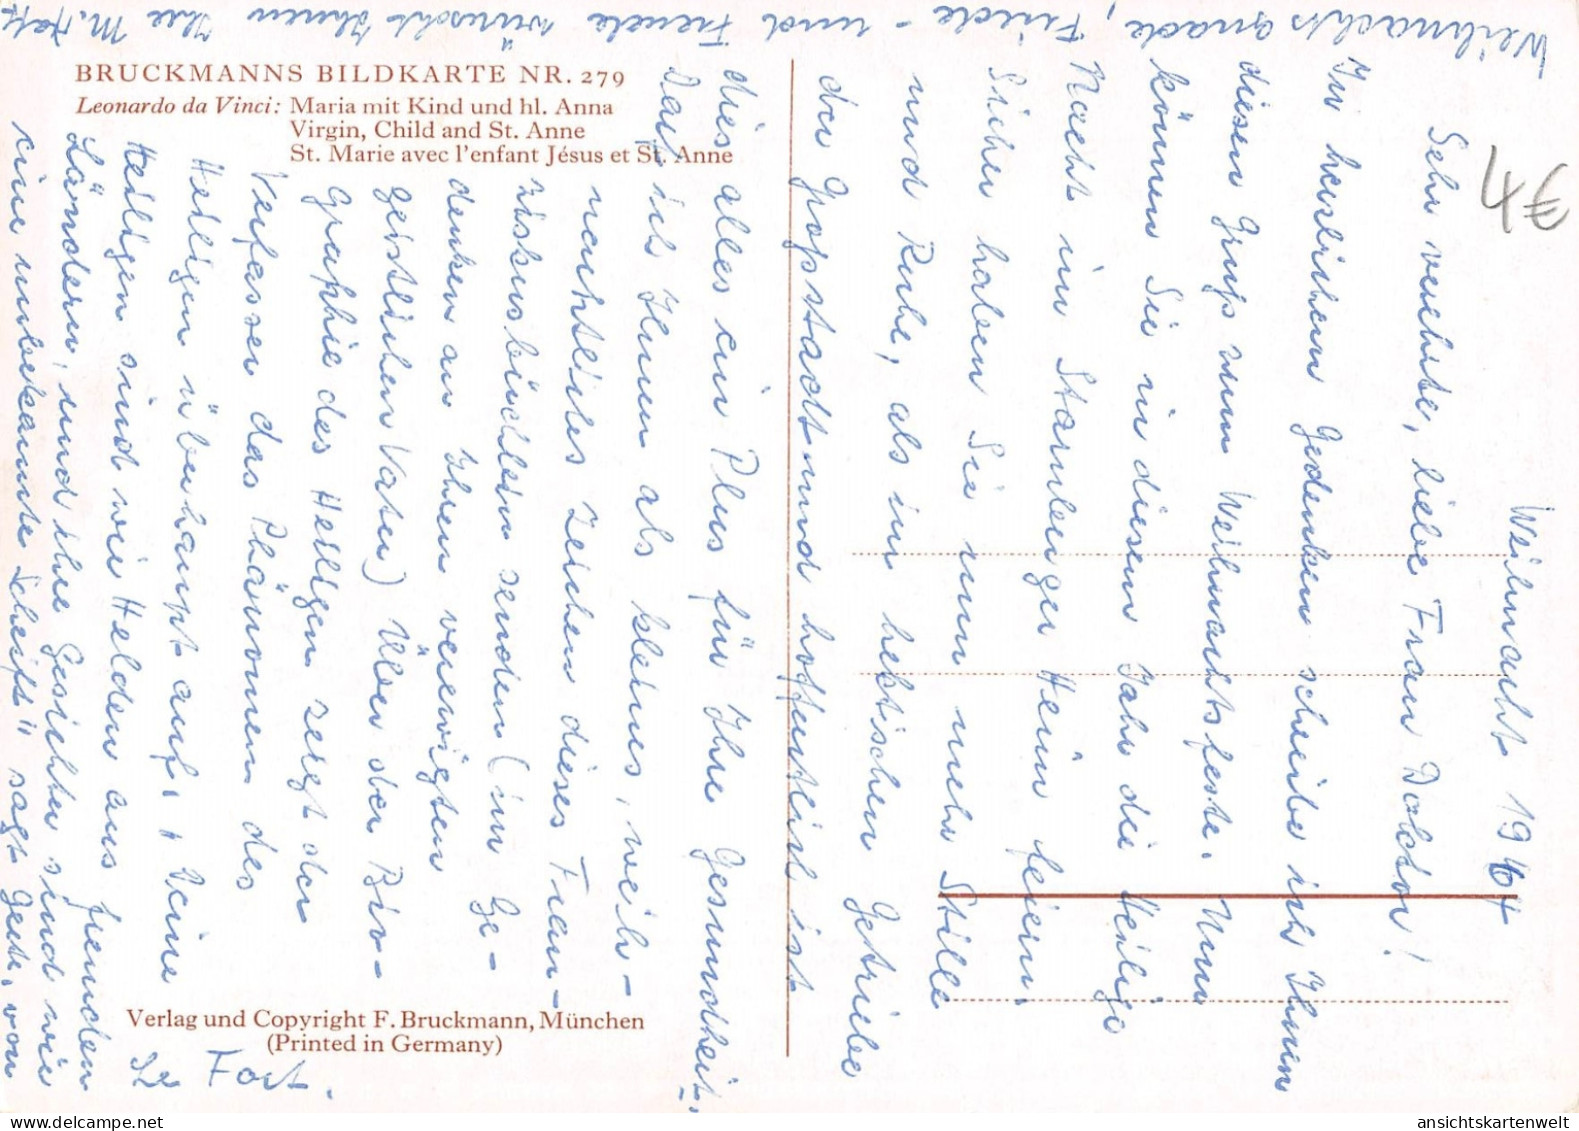 BRUCKMANNS BILDKARTE NR. 279
Leonardo da Vinci: Maria mit Kind und hl. Anna
Virgin, Child and St. Anne
St. Marie avec l'enfant Jésus et St. Anne
4€
Weihnacht 1964
Sehr verehrte, liebe Frau Doktor!
In herzlichem Gedenken schreibe ich Ihnen
diesen Gruß zum Weihnachtsfeste. Nun
können Sie in diesem Jahr die Heilige
Nacht im Starnberger Heim feiern.
Sicher haben Sie nun mehr Stille
und Ruhe, als im hektischen Getriebe
der Großstadt und hoffentlich ist
dies alles ein Plus für Ihre Gesundheit.
Darf ich Ihnen als kleines, weih-
nachtliches Zeichen dieses
senden (im Ge-
denken an Ihren verewigten
geistlichen Vater) Über der Bio-
Graphie des Heiligen zeigt der
Verfasser das Phänomen des
Heiligen überhaupt auf. "Deine
Heiligen sind wie Helden aus fremden
Ländern, und ihre Gesichter sind wie
eine unbekannte Schrift" sagt Gertr. von
le Fort.
Weihnachtsgnade, Friede - und Freude wünscht Ihnen Ihre M.
Verlag und Copyright F. Bruckmann, München
(Printed in Germany)
ansichtskartenwelt